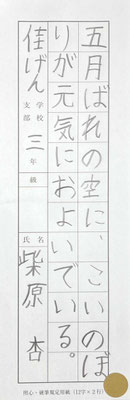 五月ばれの空に、こいのぼ
りが元気におよいでいる。
佳げん 学校支部 三 年級 氏名 柴原 杏
硬筆規定用紙(12字×2行)